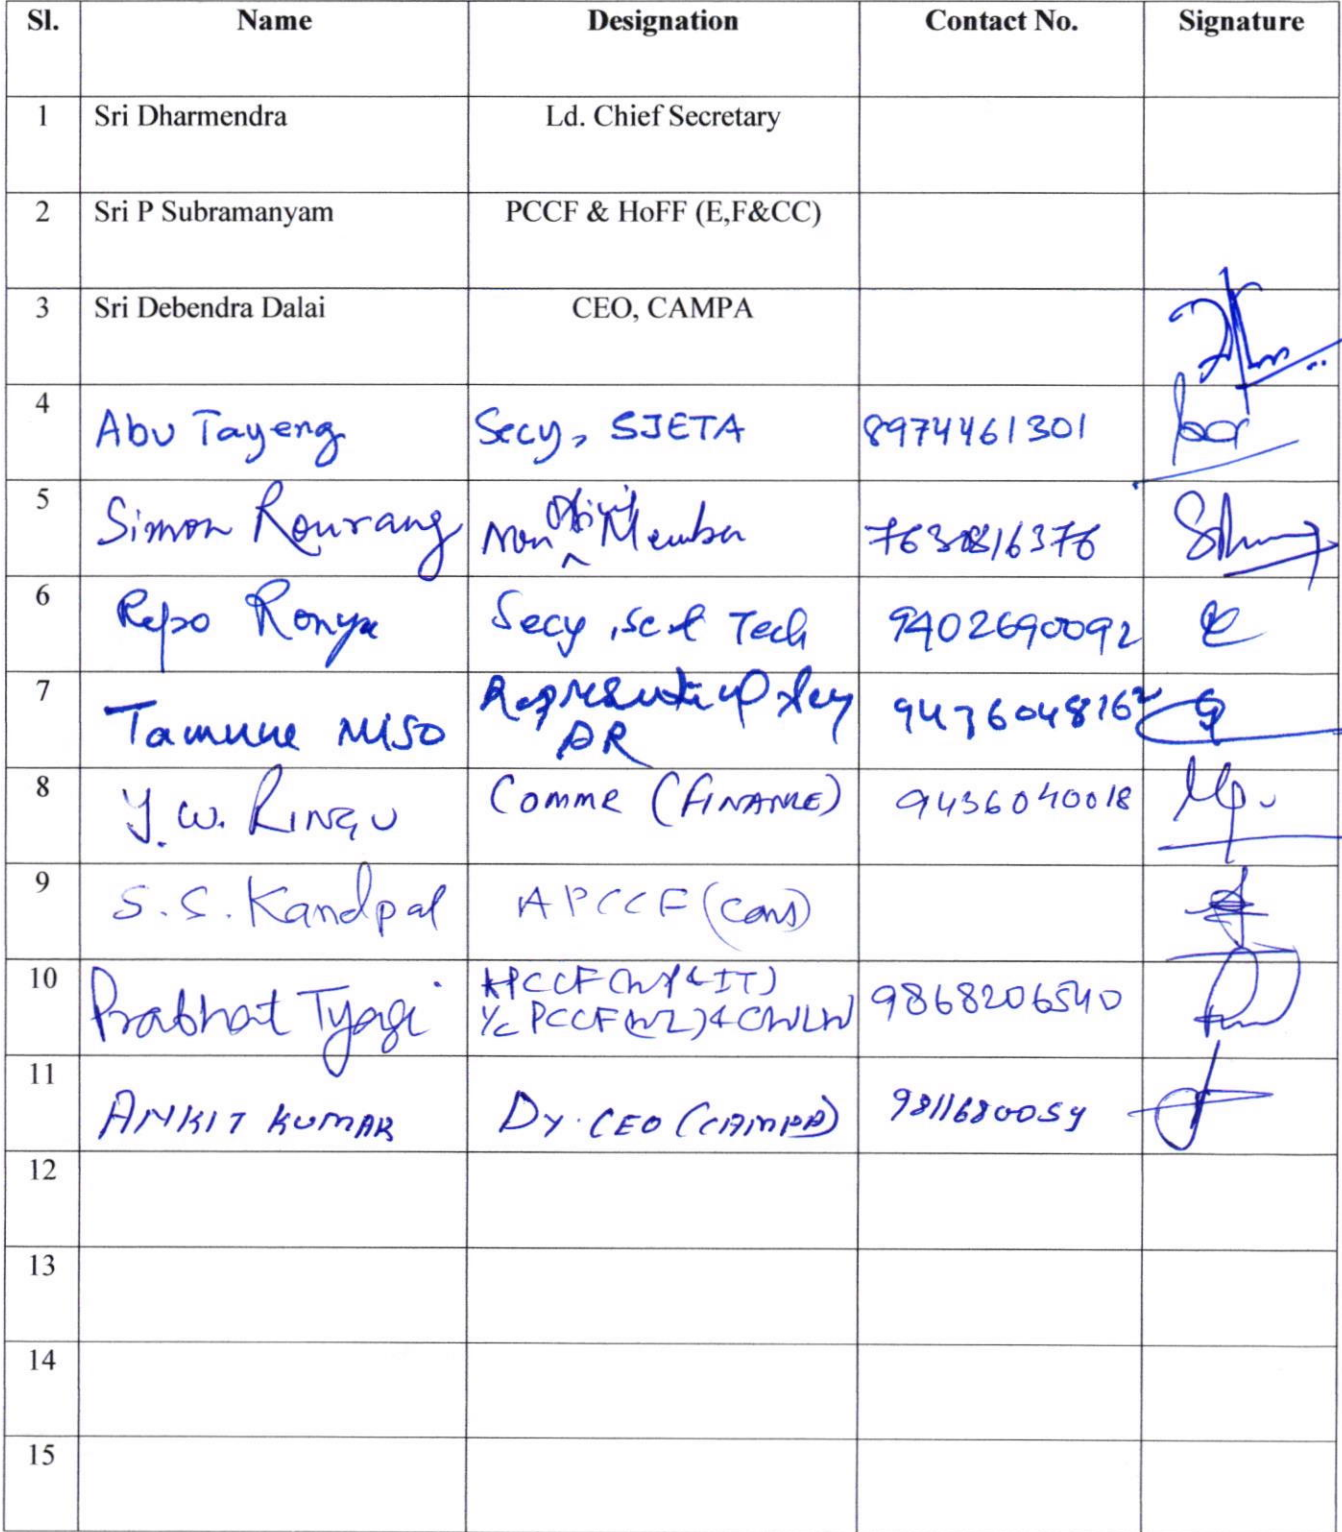 Sl. Name Designation Contact No. Signature
1 Sri Dharmendra Ld. Chief Secretary
2 Sri P Subramanyam PCCF & HoFF (E,F&CC)
3 Sri Debendra Dalai CEO, CAMPA
4 Abu Tayeng Secy, SJETA 8974461301
5 Simon Rourang Non Member
6 Repo Ronya Secy, Tech 9402690092
7 Tamune MISO 9436048162
DR
8 Y.W. RINGU Comme (FINANCE) 9436040018
9 S.S. Kandpal APCCF (Cons)
10 Prabhat Tyagi 9868206540
11 ANKIT KUMAR Dy. CEO (CAMPA) 9811680054
12
13
14
15